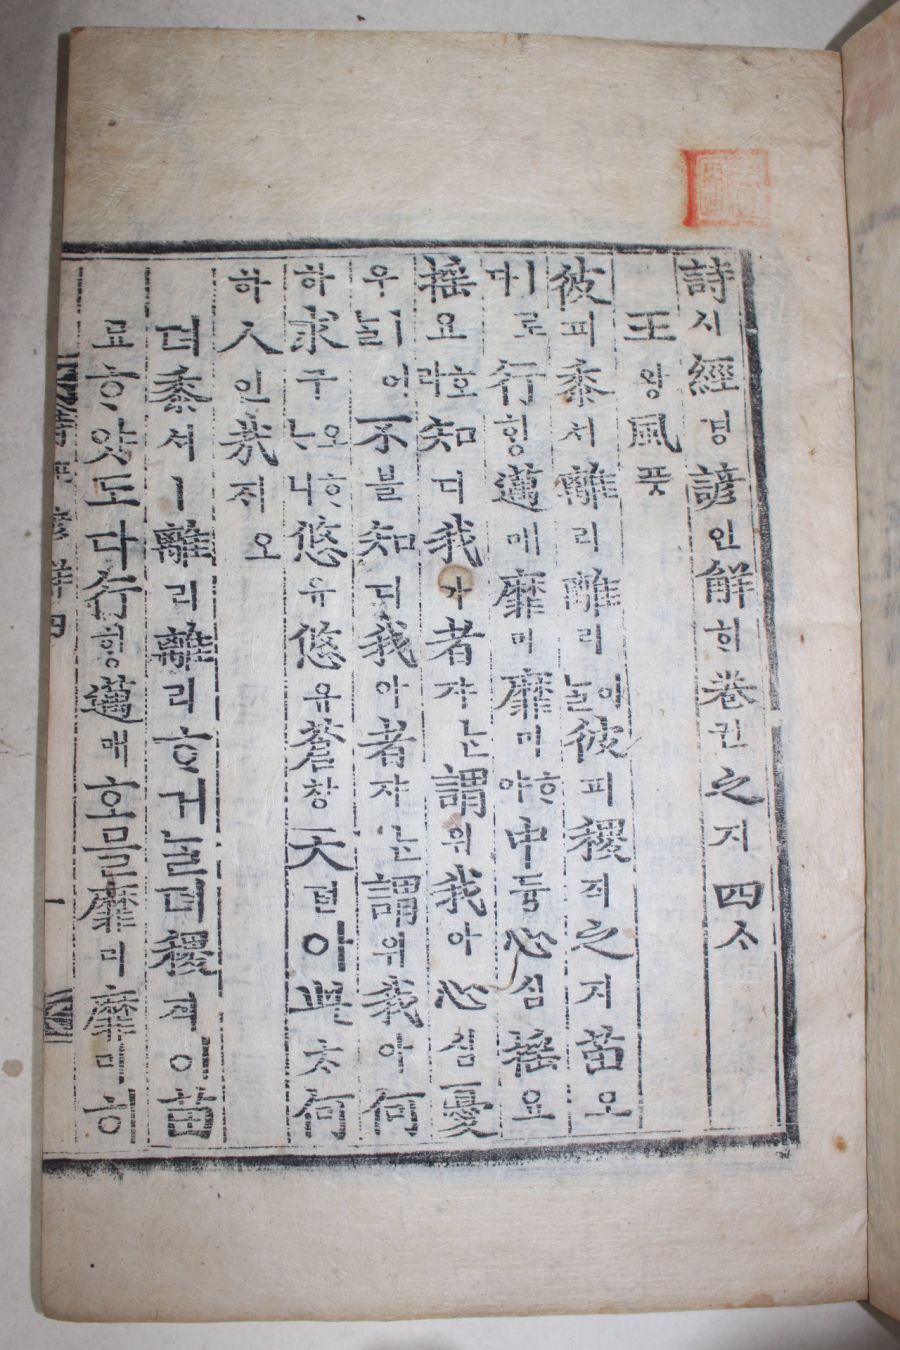 詩시經경諺언解ᄒᆡ卷권之지四ᄉᆞ
王왕風풍
彼피黍셔離리離리늘이彼피稷직之지苗묘
ㅣ로다行ᄒᆡᆼ邁매靡미靡미ᄒᆞ야中듕心심搖요
搖요호라知디我아者쟈ᄂᆞᆫ謂위我아心심憂
우ㅣ어늘不블知디我아者쟈ᄂᆞᆫ謂위我아何
하求구오ᄒᆞᄂᆞ니悠유悠유蒼창天텬아此ᄎᆞ何
하人인哉ᄌᆡ오
뎌黍셔ㅣ離리離리ᄒᆞ거늘뎌稷직의苗
묘ᄒᆞ얏도다行ᄒᆡᆼ邁매홈을靡미靡미히